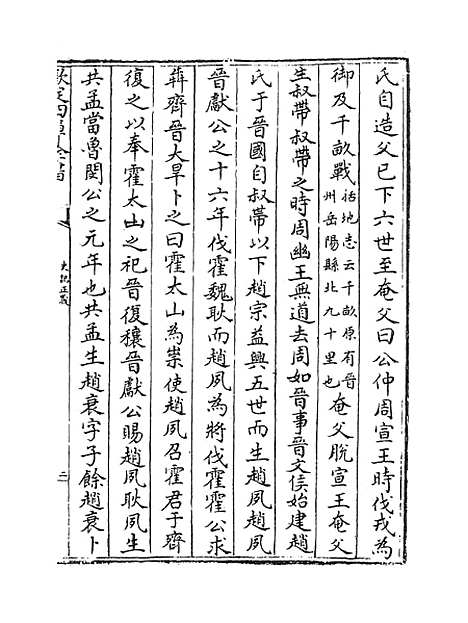 氏自造父已下六世至奄父曰公仲周宣王時伐戎為
御及千畝戰括地志云千畝原在晉州岳陽縣北九十里也奄父脫宣王奄父
生叔帶叔帶之時周幽王無道去周如晉事晉文侯始建趙
氏于晉國自叔帶以下趙宗益興五世而生趙夙趙夙
晉獻公之十六年伐霍魏耿而趙夙為將伐霍霍公求
犇齊晉大旱卜之曰霍太山為祟使趙夙召霍君于齊
復之以奉霍太山之祀晉復穰晉獻公賜趙夙耿夙生
共孟當魯閔公之元年也共孟生趙衰字子餘趙衰卜
欽定四庫全書
史記正義
二